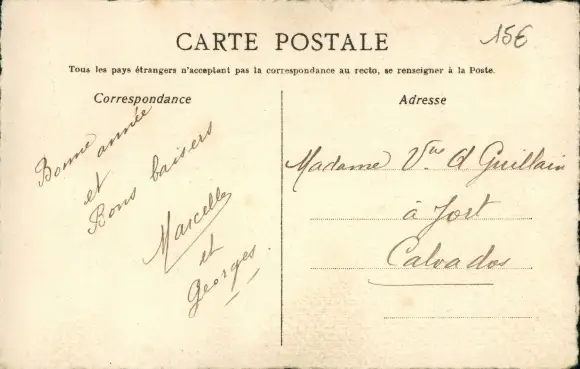 15€
CARTE POSTALE
Tous les pays étrangers n'acceptent pas la correspondance au recto, se renseigner à la Poste.
Correspondance
Bonne année
et
Bons baisers
Marcelle
et
Georges.
Adresse
Madame Vve d Guillain
à Jort
Calvados